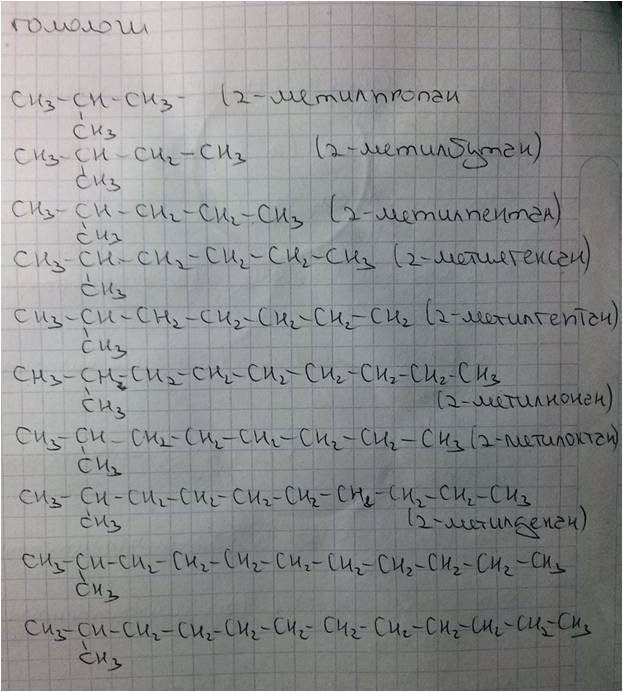 гомологи
CH3-CH-CH3- (2-метилпропан
CH3
CH3-CH-CH2-CH3 (2-метилбутан)
CH3
CH3-CH-CH2-CH2-CH3 (2-метилпентан)
CH3
CH3-CH-CH2-CH2-CH2-CH3 (2-метилгексан)
CH3
CH3-CH-CH2-CH2-CH2-CH2-CH2 (2-метилгептан)
CH3
CH3-CH2-CH2-CH2-CH2-CH2-CH2-CH2-CH3
CH3 (2-метилнонан)
CH3-CH-CH2-CH2-CH2-CH2-CH2-CH3 (2-метилоктан)
CH3
CH3-CH-CH2-CH2-CH2-CH2-CH2-CH2-CH2-CH3
CH3 (2-метилдекан)
CH3-CH-CH2-CH2-CH2-CH2-CH2-CH2-CH2-CH2-CH3
CH3
CH3-CH-CH2-CH2-CH2-CH2-CH2-CH2-CH2-CH2-CH2-CH3
CH3